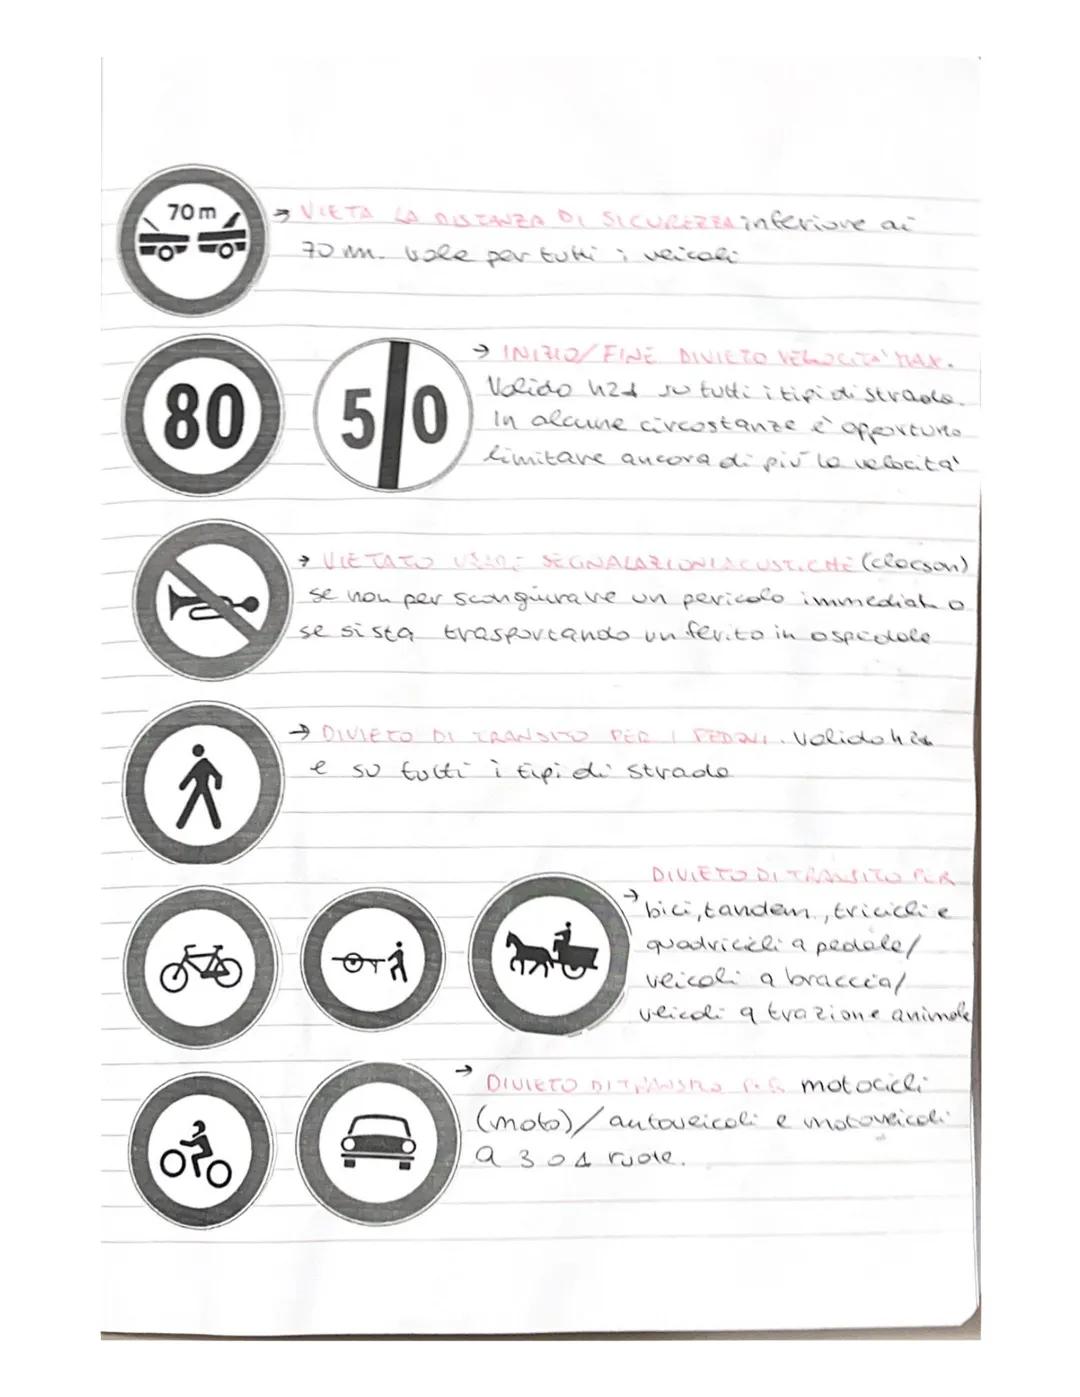 70 m
→ VIETA LA DISTANZA DI SICUREZZA inferiore ai
70 m. vale per tutti i veicoli
80
50
→ INIZIO/FINE DIVIETO VELOCITA' MAX.
Valido h24 su tutti i tipi di strada.
In alcune circostanze è opportuno
limitare ancora di più la velocità
→ VIETATO USARE SEGNALAZIONI ACUSTICHE (clacson)
se non per scongiurare un pericolo immediato o
se si sta trasportando un ferito in ospedale
→ DIVIETO DI TRANSITO PER I PEDONI. Valido h24
e su tutti i tipi di strada
DIVIETO DI TRANSITO PER
→ bici, tandem, tricicli e
quadricicli a pedale/
veicoli a braccia/
veicoli a trazione animale
→ DIVIETO DI TRANSITO PER motocicli
(moto)/autoveicoli e motoveicoli
a 3 o 4 ruote.